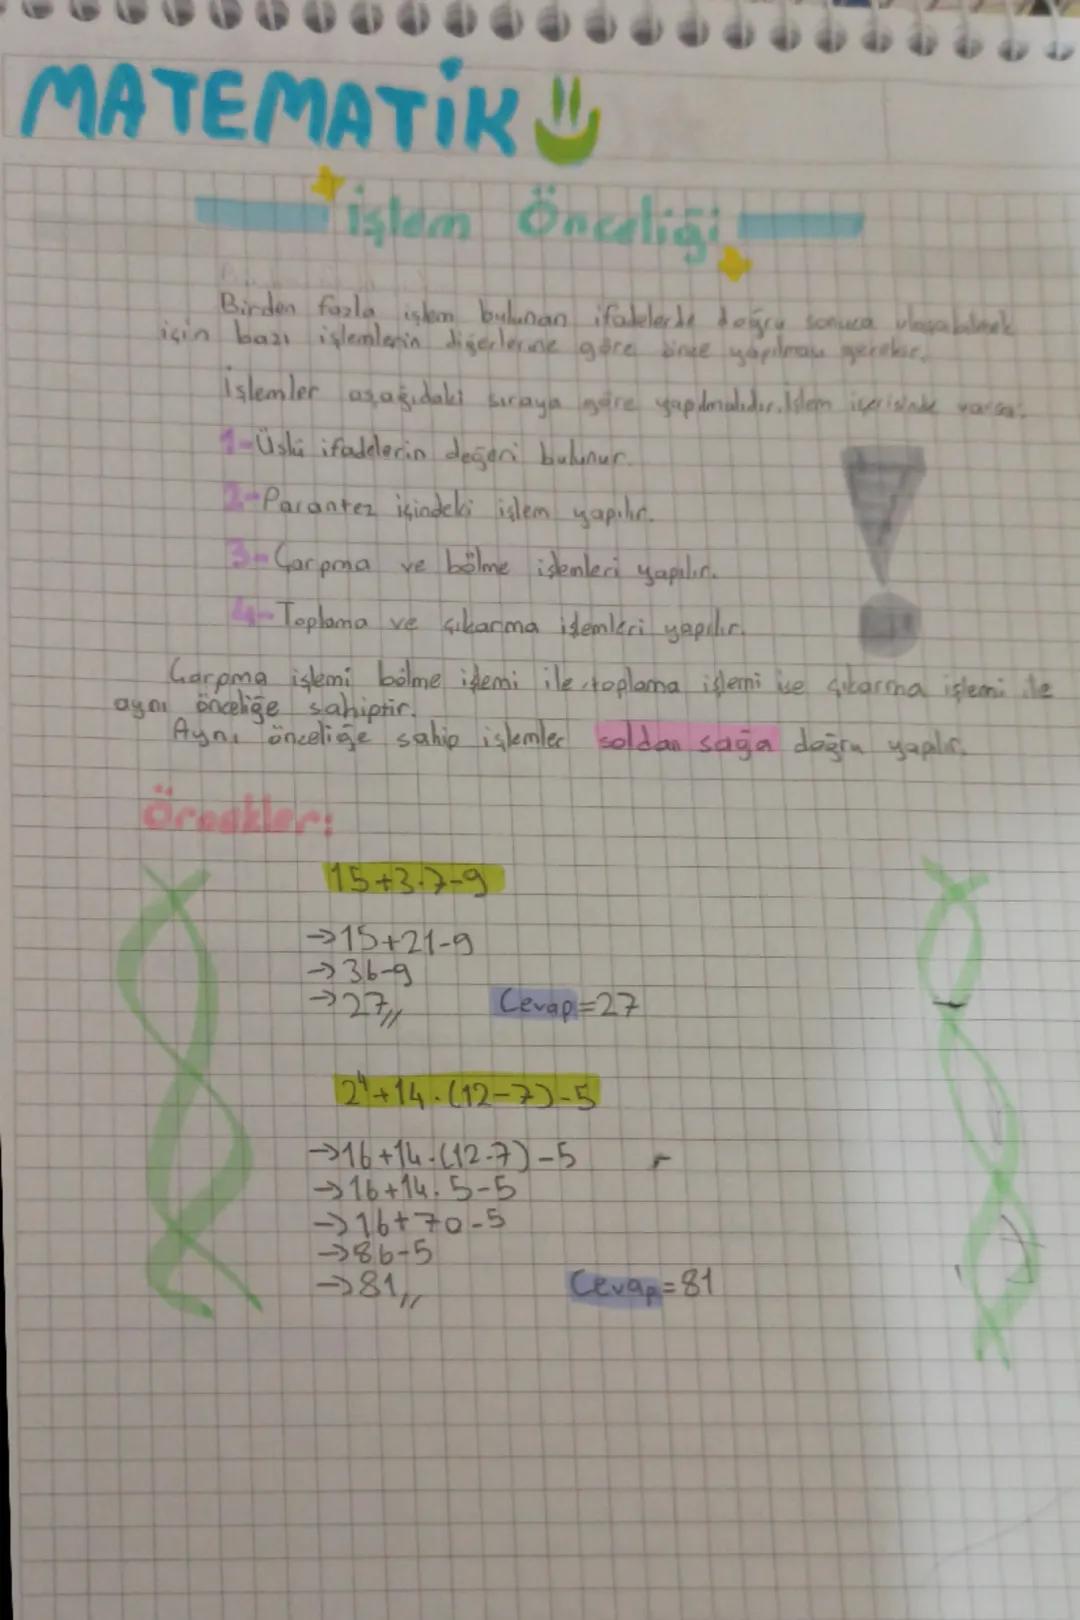 MATEMATİK
İşlem Önceliği
Birden fazla işlem bulunan ifadelerde doğru sonuca ulaşabilmek
için bazı işlemlerin diğerlerine göre önce yapılması gerekir.
İşlemler aşağıdaki sıraya göre yapılmalıdır. İşlem içerisinde varsa:
1-Üslü ifadelerin değeri bulunur.
2-Parantez içindeki işlem yapılır.
3-Çarpma ve bölme işlemleri yapılır.
4-Toplama ve çıkarma işlemleri yapılır.
Çarpma işlemi bölme işlemi ile, toplama işlemi ise çıkarma işlemi ile
aynı önceliğe sahiptir.
Aynı önceliğe sahip işlemler soldan sağa doğru yapılır.
Örnekler:
15+3.7-9
→15+21-9
→36-9
→27,, Cevap=27
2⁴+14.(12-7)-5
→16+14.(12-7)-5
→16+14.5-5
→16+70-5
→86-5
→81,, Cevap=81